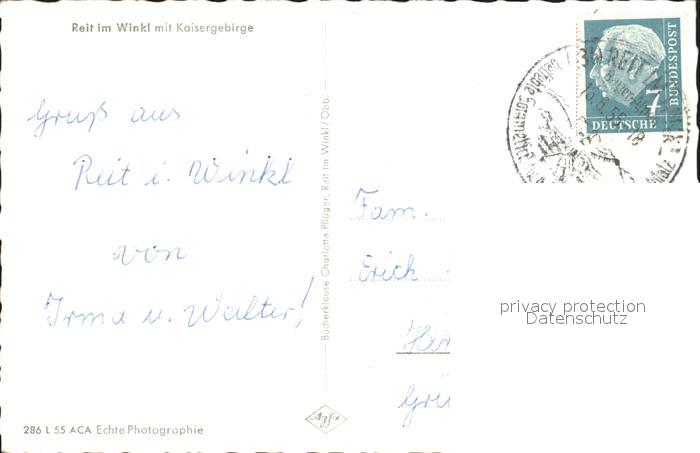 Reit im Winkl mit Kaisergebirge
Gruß aus
Reit i. Winkl
von
Irma u. Walter!
286 L 55 ACA Echte Photographie
Bücherklause Charlotte Pflüger, Reit im Winkl/Obb.
Agfa
DEUTSCHE
BUNDESPOST
7
REIT
Fam.
Erich
privacy protection
Datenschutz